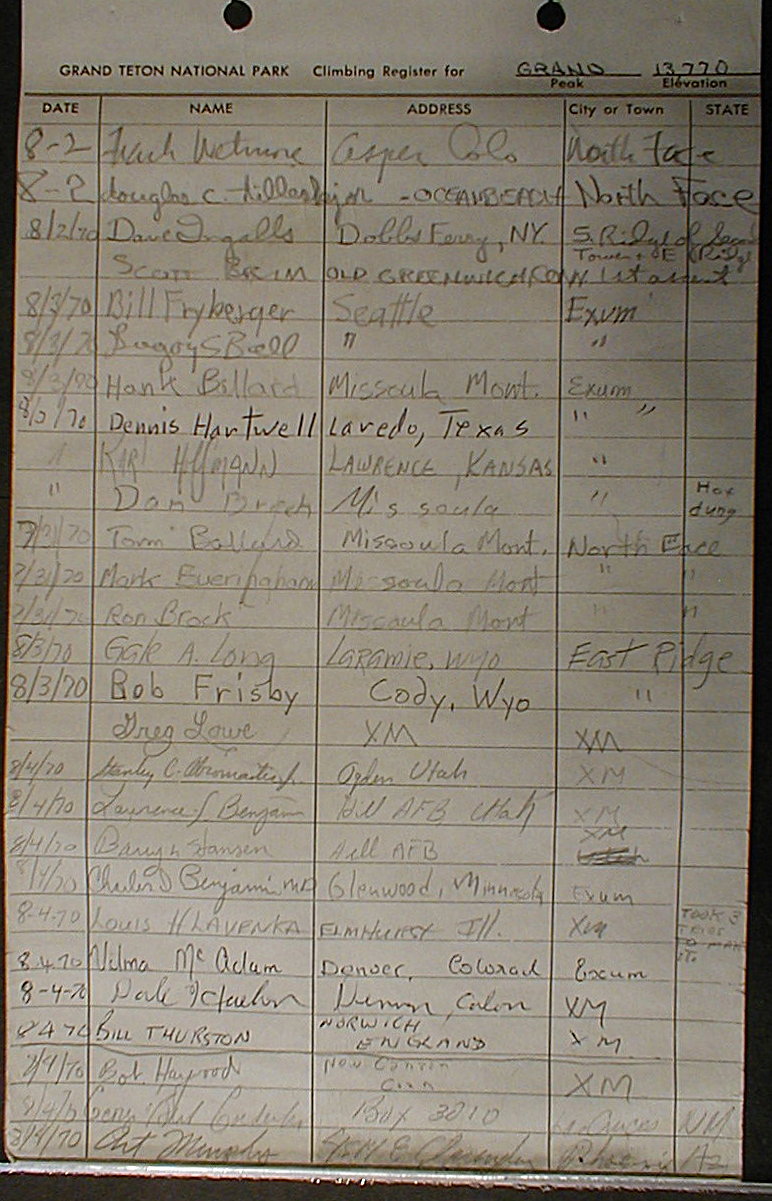 GRAND TETON NATIONAL PARK Climbing Register for GRAND 13,770
Peak Elevation
DATE NAME ADDRESS City or Town STATE
8-2 Aspen Colo North Face
8-2 Douglas C. -OCEANBEACH North Face
8/2/70 Dave Ingalls Dobbs Ferry, NY. S. Ridge of Second
Tower + E Ridge
Scott BRIM OLD GREENWICH CONN 1st ascent
8/3/70 Bill Fryberger Seattle Exum
8/3/70 " "
8/3/70 Hank Billard Missoula Mont. Exum
8/3/70 Dennis Hartwell Laredo, Texas " "
" KARL HFFMANN LAWRENCE, KANSAS "
" Dan Missoula " Hot
dung
7/31/70 Tom Ballard Missoula Mont. North Face
7/31/70 Mark Everingham Missoula Mont " "
7/31/70 Ron Brock Missoula Mont " "
8/3/70 Gale A. Long Laramie, Wyo East Ridge
8/3/70 Bob Frisby Cody, Wyo "
Greg Lowe XM XM
8/4/70 Stanley C. Ogden Utah XM
8/4/70 Lawrence S Benjamin Hill AFB Utah XM
XM
8/4/70 Hansen Hill AFB
8/4/70 Charles D Benjamin MD Glenwood, Minnesota Exum
8-4-70 LOUIS HLAVENKA ELMHURST Ill. XM TOOK 3
TRIES
TO MAKE
IT.
8-4-70 Velma McAdam Denver, Colorad Exum
8-4-70 Dale Denver, Colon XM
8 4 70 BILL THURSTON NORWICH
ENGLAND XM
8/4/70 Bob Haywood New Canaan
Conn XM
8/4/70 Box 3810 Las Cruces NM
8/4/70 Art Murphy Phoenix Az